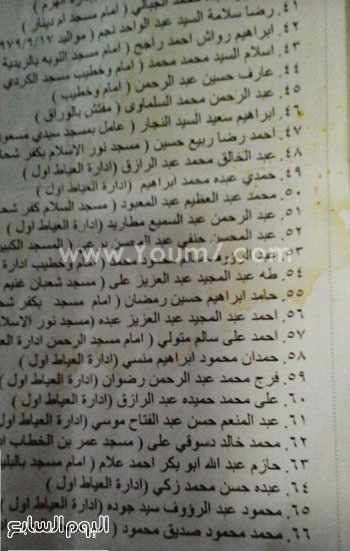 ٤١. رضا سلامة السيد عبد الواحد نجم ( امام مسجد ام دينار )
٤٢. ابراهيم رواش احمد راجح ( مواليد ٩٧٩/٦/١٧
٤٣. اسلام السيد محمد محمد ( امام مسجد التوبه بالزيدية
٤٤. عارف حسين عبد الرحمن ( امام وخطيب مسجد الكردي
٤٥. عبد الرحمن محمد السلماوى ( امام وخطيب )
٤٦. ابراهيم سعيد السيد النجار ( مفتش بالوراق )
٤٧. احمد رضا ربيع حسين ( عامل بمسجد سيدي مسعو
٤٨. عبد الخالق محمد عبد الرازق ( مسجد نور الاسلام بكفر شحا
٤٩. حمدي عبده محمد ابراهيم (ادارة العياط اول )
٥٠. محمد عبد العظيم عبد المعبود ( ادارة العياط اول )
٥١. عبد الرحمن عبد السميع مطاريد ( مسجد السلام كفر شح
عبد المحسن حنفي عبد (ادارة العياط اول )
عبد ( المسجد الكبير
٥٤. طه عبد المجيد عبد العزيز على ( امام وخطيب ادارة
٥٥. حامد ابراهيم حسين رمضان ( مسجد شعبان غنيم
٥٦. احمد عبد المجيد عبد العزيز عبده ( امام مسجد بكفر شح
٥٧. احمد على سالم متولي ( مسجد نور الاسلا
٥٨. حمدان محمود ابراهيم منسي ( امام مسجد الرحمن ادارة الع
٥٩. فرج محمد عبد الرحمن رضوان (ادارة العياط اول )
٦٠. على محمد حميده عبد الرازق (ادارة العياط اول )
٦١. عبد المنعم حسن عبد الفتاح موسي (ادارة العياط اول )
٦٢. محمد خالد دسوقي على ( ادارة العياط اول
٦٣. حازم عبد الله ابو بكر احمد علام ( مسجد عمر بن الخطاب اد
٦٤. عبده حسن محمد زكي ( امام مسجد بالبلي
٦٥. محمود عبد الرؤوف سيد جوده (ادارة العياط اول )
٦٦. محمد محمود صديق محمود ( ادارة العياط اول )
www.Youm7.com
اليوم السابع